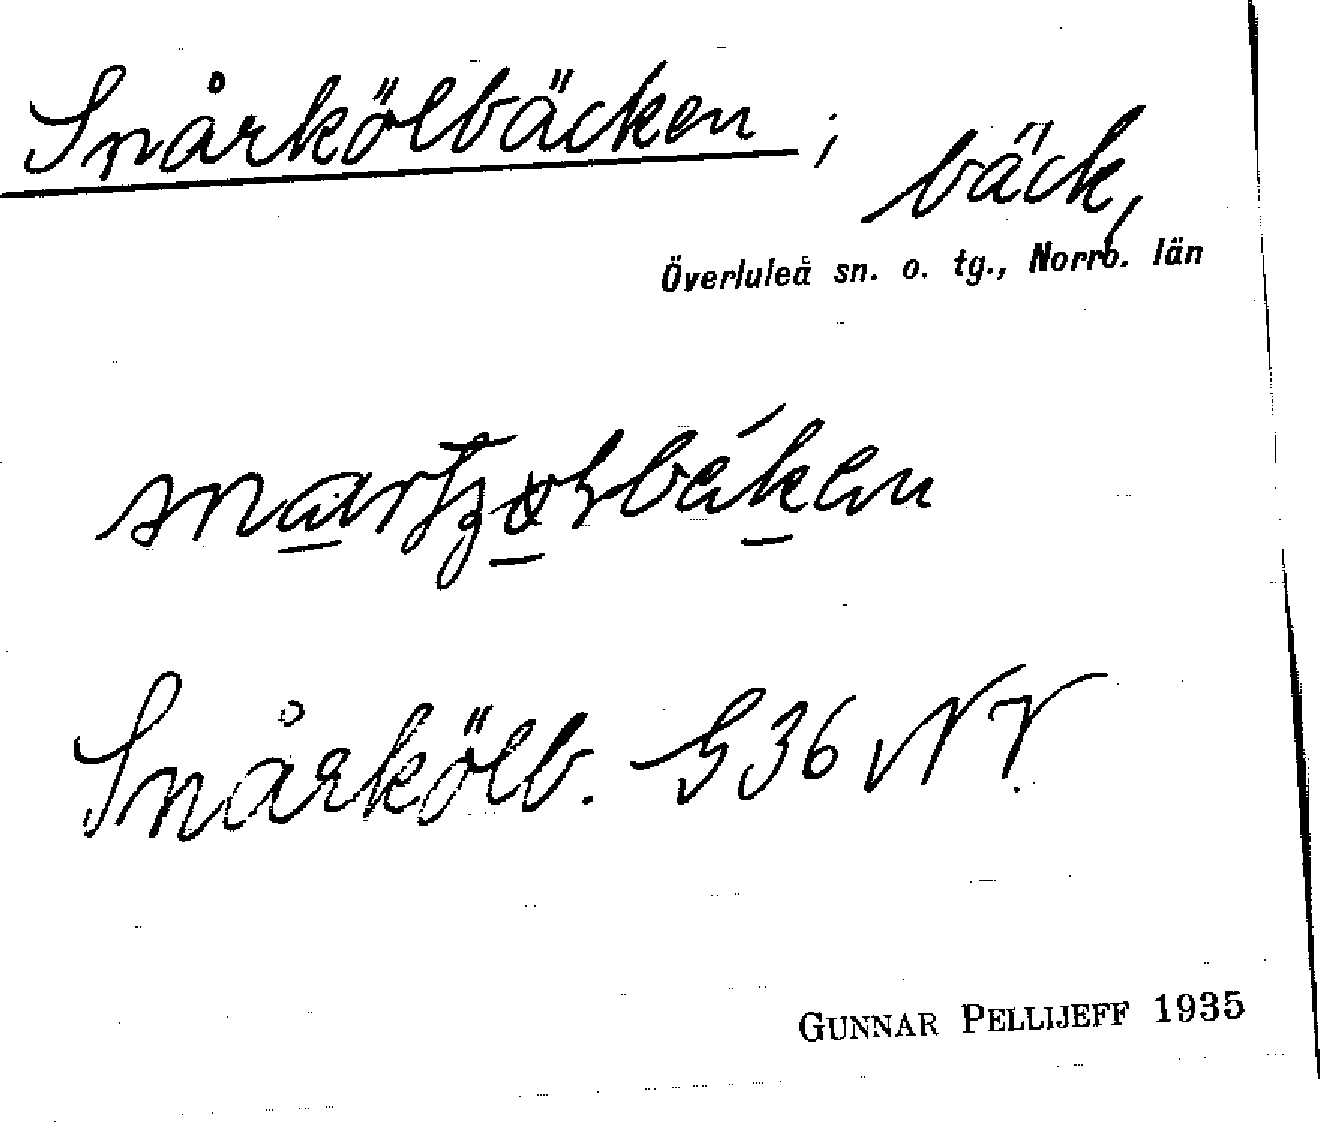 Snårkölbäcken ; bäck,
Överluleå sn. o. tg., Norrb. län
Snårkölb. G36 NV
GUNNAR PELLIJEFF 1935